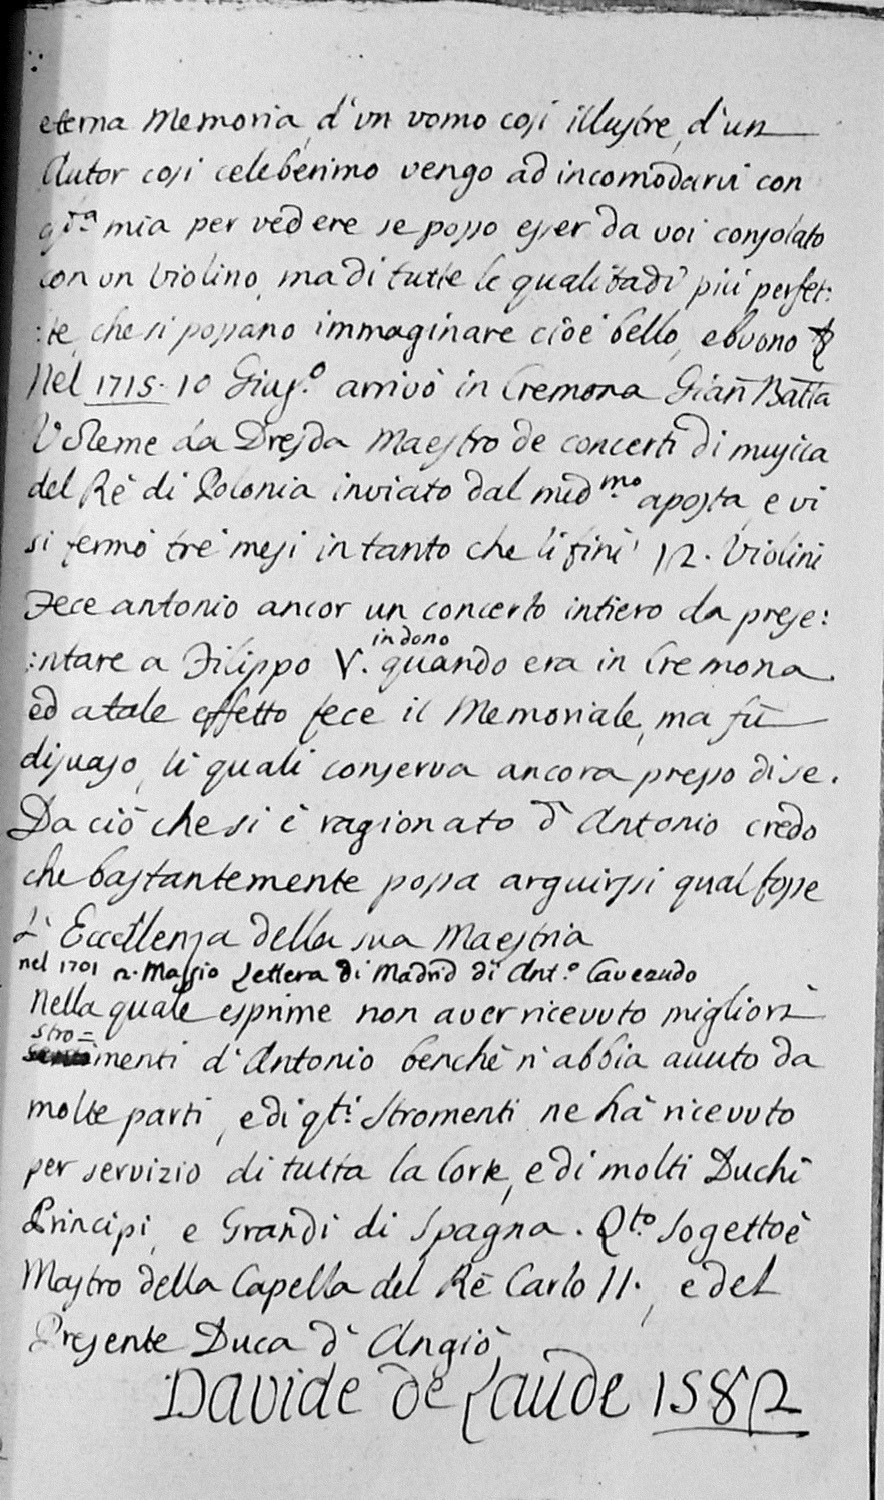 eterna Memoria, d'un uomo cosi illustre, d'un
Autor cosi celeberimo vengo ad incomodarvi con
mia per vedere se posso esser da voi consolato
con un Violino, ma di tutte le qualitadi più perfet:
:te, che si possano immaginare cioè bello, e buono
Nel 1715. 10 Giug.o arrivò in Cremona Gian Batta
Voleme da Dresda Maestro de concerti di musica
del Rè di Polonia inviato dal med.mo aposta, e vi
si fermò trè mesi in tanto che li finì 12. Violini
Fece antonio ancor un concerto intiero da prese:
in dono
:ntare a Filippo V. quando era in Cremona.
ed a tale effetto fece il Memoriale, ma fù
disuaso, li quali conserva ancora presso di se.
Da ciò che si è ragionato d'Antonio credo
che bastantemente possa arguirsi qual fosse
L'Eccellenza della sua Maestria
nel 1701 a. Massio Lettera di Madrid di Ant.o Cavezudo
Nella quale esprime non aver ricevuto migliori
stro=
menti d'Antonio benchè n'abbia avuto da
molte parti, e di qti: Stromenti ne hà ricevuto
per servizio di tutta la Corte, e di molti Duchi
Principi, e Grandi di Spagna. Qto. Sogetto è
Mastro della Capella del Rè Carlo II., e del
Presente Duca d'Angiò
Davide de Laude 1582